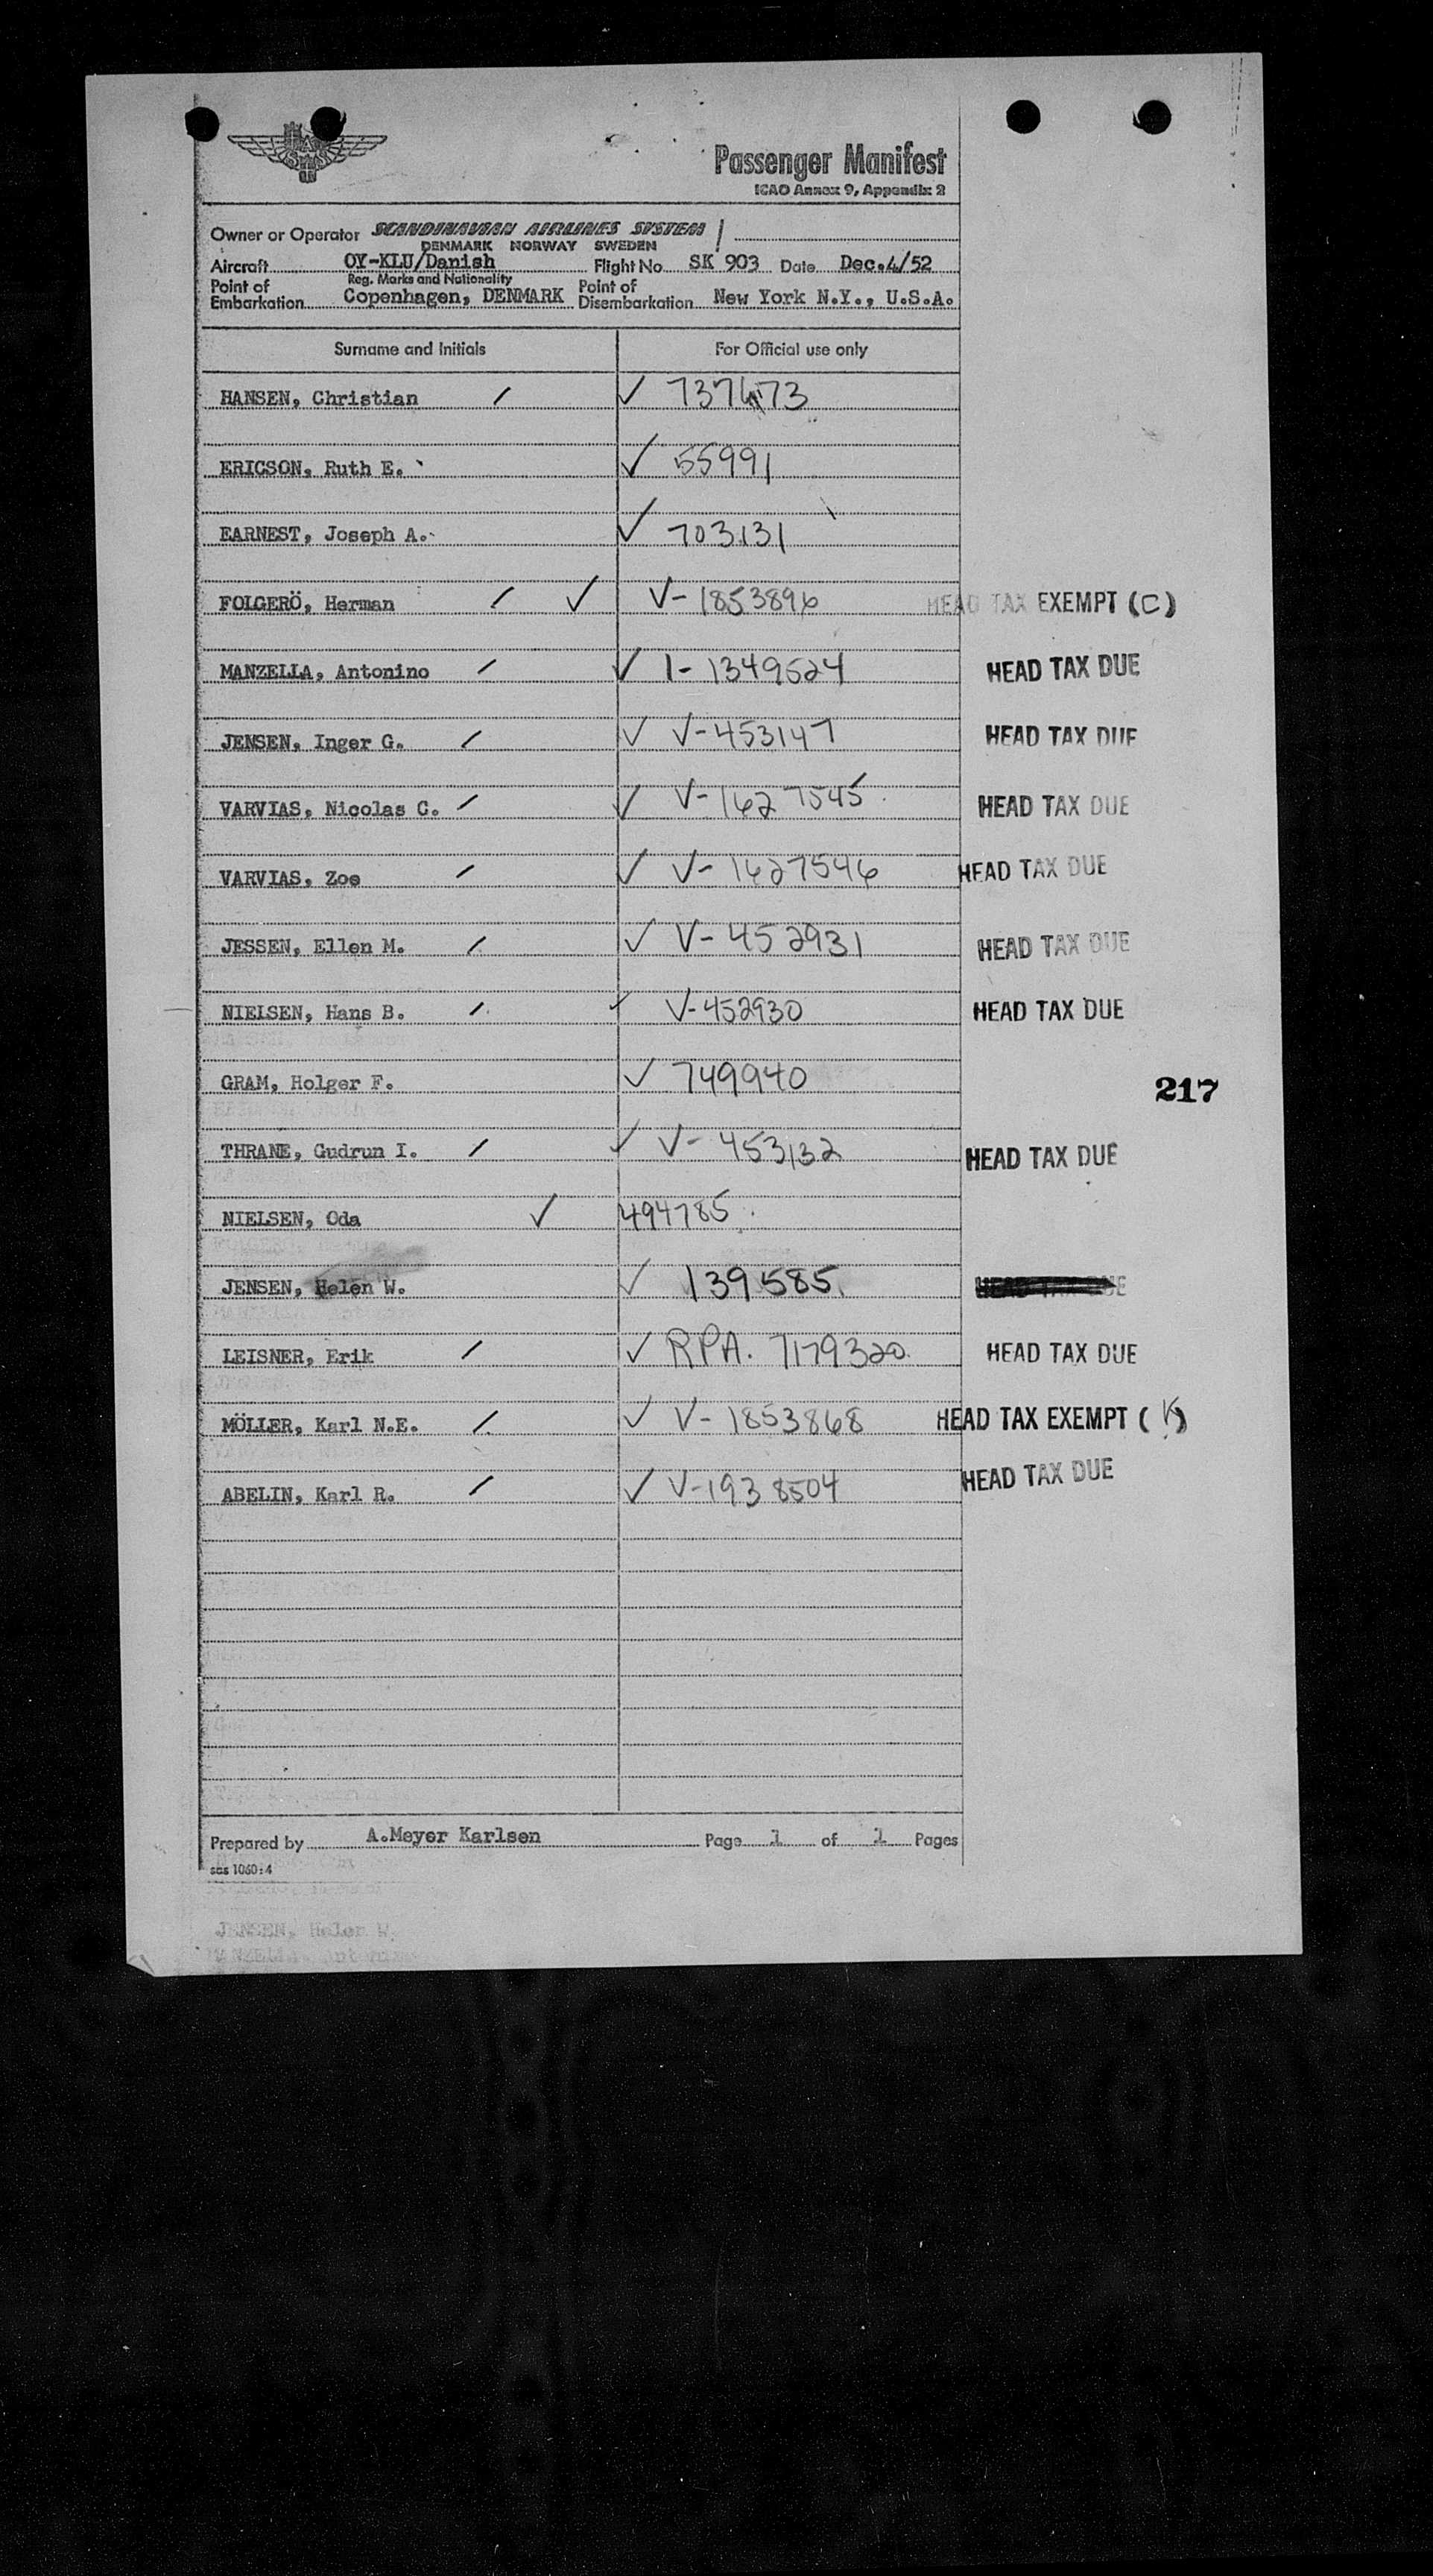 Passenger Manifest
ICAO Annex 9, Appendix 2
Owner or Operator SCANDINAVIAN AIRLINES SYSTEM
DENMARK NORWAY SWEDEN
Aircraft OY-KLU/Danish Flight No SK 903 Date Dec.4/52
Reg. Marks and Nationality
Point of Embarkation Copenhagen, DENMARK Point of Disembarkation New York N.Y., U.S.A.
Surname and Initials For Official use only
HANSEN, Christian / ✓
ERICSON, Ruth E. ✓ 55991
EARNEST, Joseph A. ✓ 703131
FOLGERÖ, Herman / ✓ V-1853896 HEAD TAX EXEMPT (C)
MANZELLA, Antonino / ✓ I-1349524 HEAD TAX DUE
JENSEN, Inger G. / ✓ V-453147 HEAD TAX DUE
VARVIAS, Nicolas C. / ✓ V-1627545 HEAD TAX DUE
VARVIAS, Zoe / ✓ V-1627546 HEAD TAX DUE
JESSEN, Ellen M. / ✓ V-452931 HEAD TAX DUE
NIELSEN, Hans B. / ✓ V-452930 HEAD TAX DUE
GRAM, Holger F. ✓ 749940
217
THRANE, Gudrun I. / ✓ V-453132 HEAD TAX DUE
NIELSEN, Oda ✓ 494785
JENSEN, Helen W. ✓ 139585 HEAD TAX DUE
LEISNER, Erik / ✓ RPA. 7179320 HEAD TAX DUE
MÖLLER, Karl N.E. / ✓ V-1853868 HEAD TAX EXEMPT (K)
ABELIN, Karl R. / ✓ V-1938504 HEAD TAX DUE
Prepared by A.Meyer Karlsen Page 1 of 1 Pages
sas 1060:4
JENSEN, Helen W.
MANZELLA, Antonino